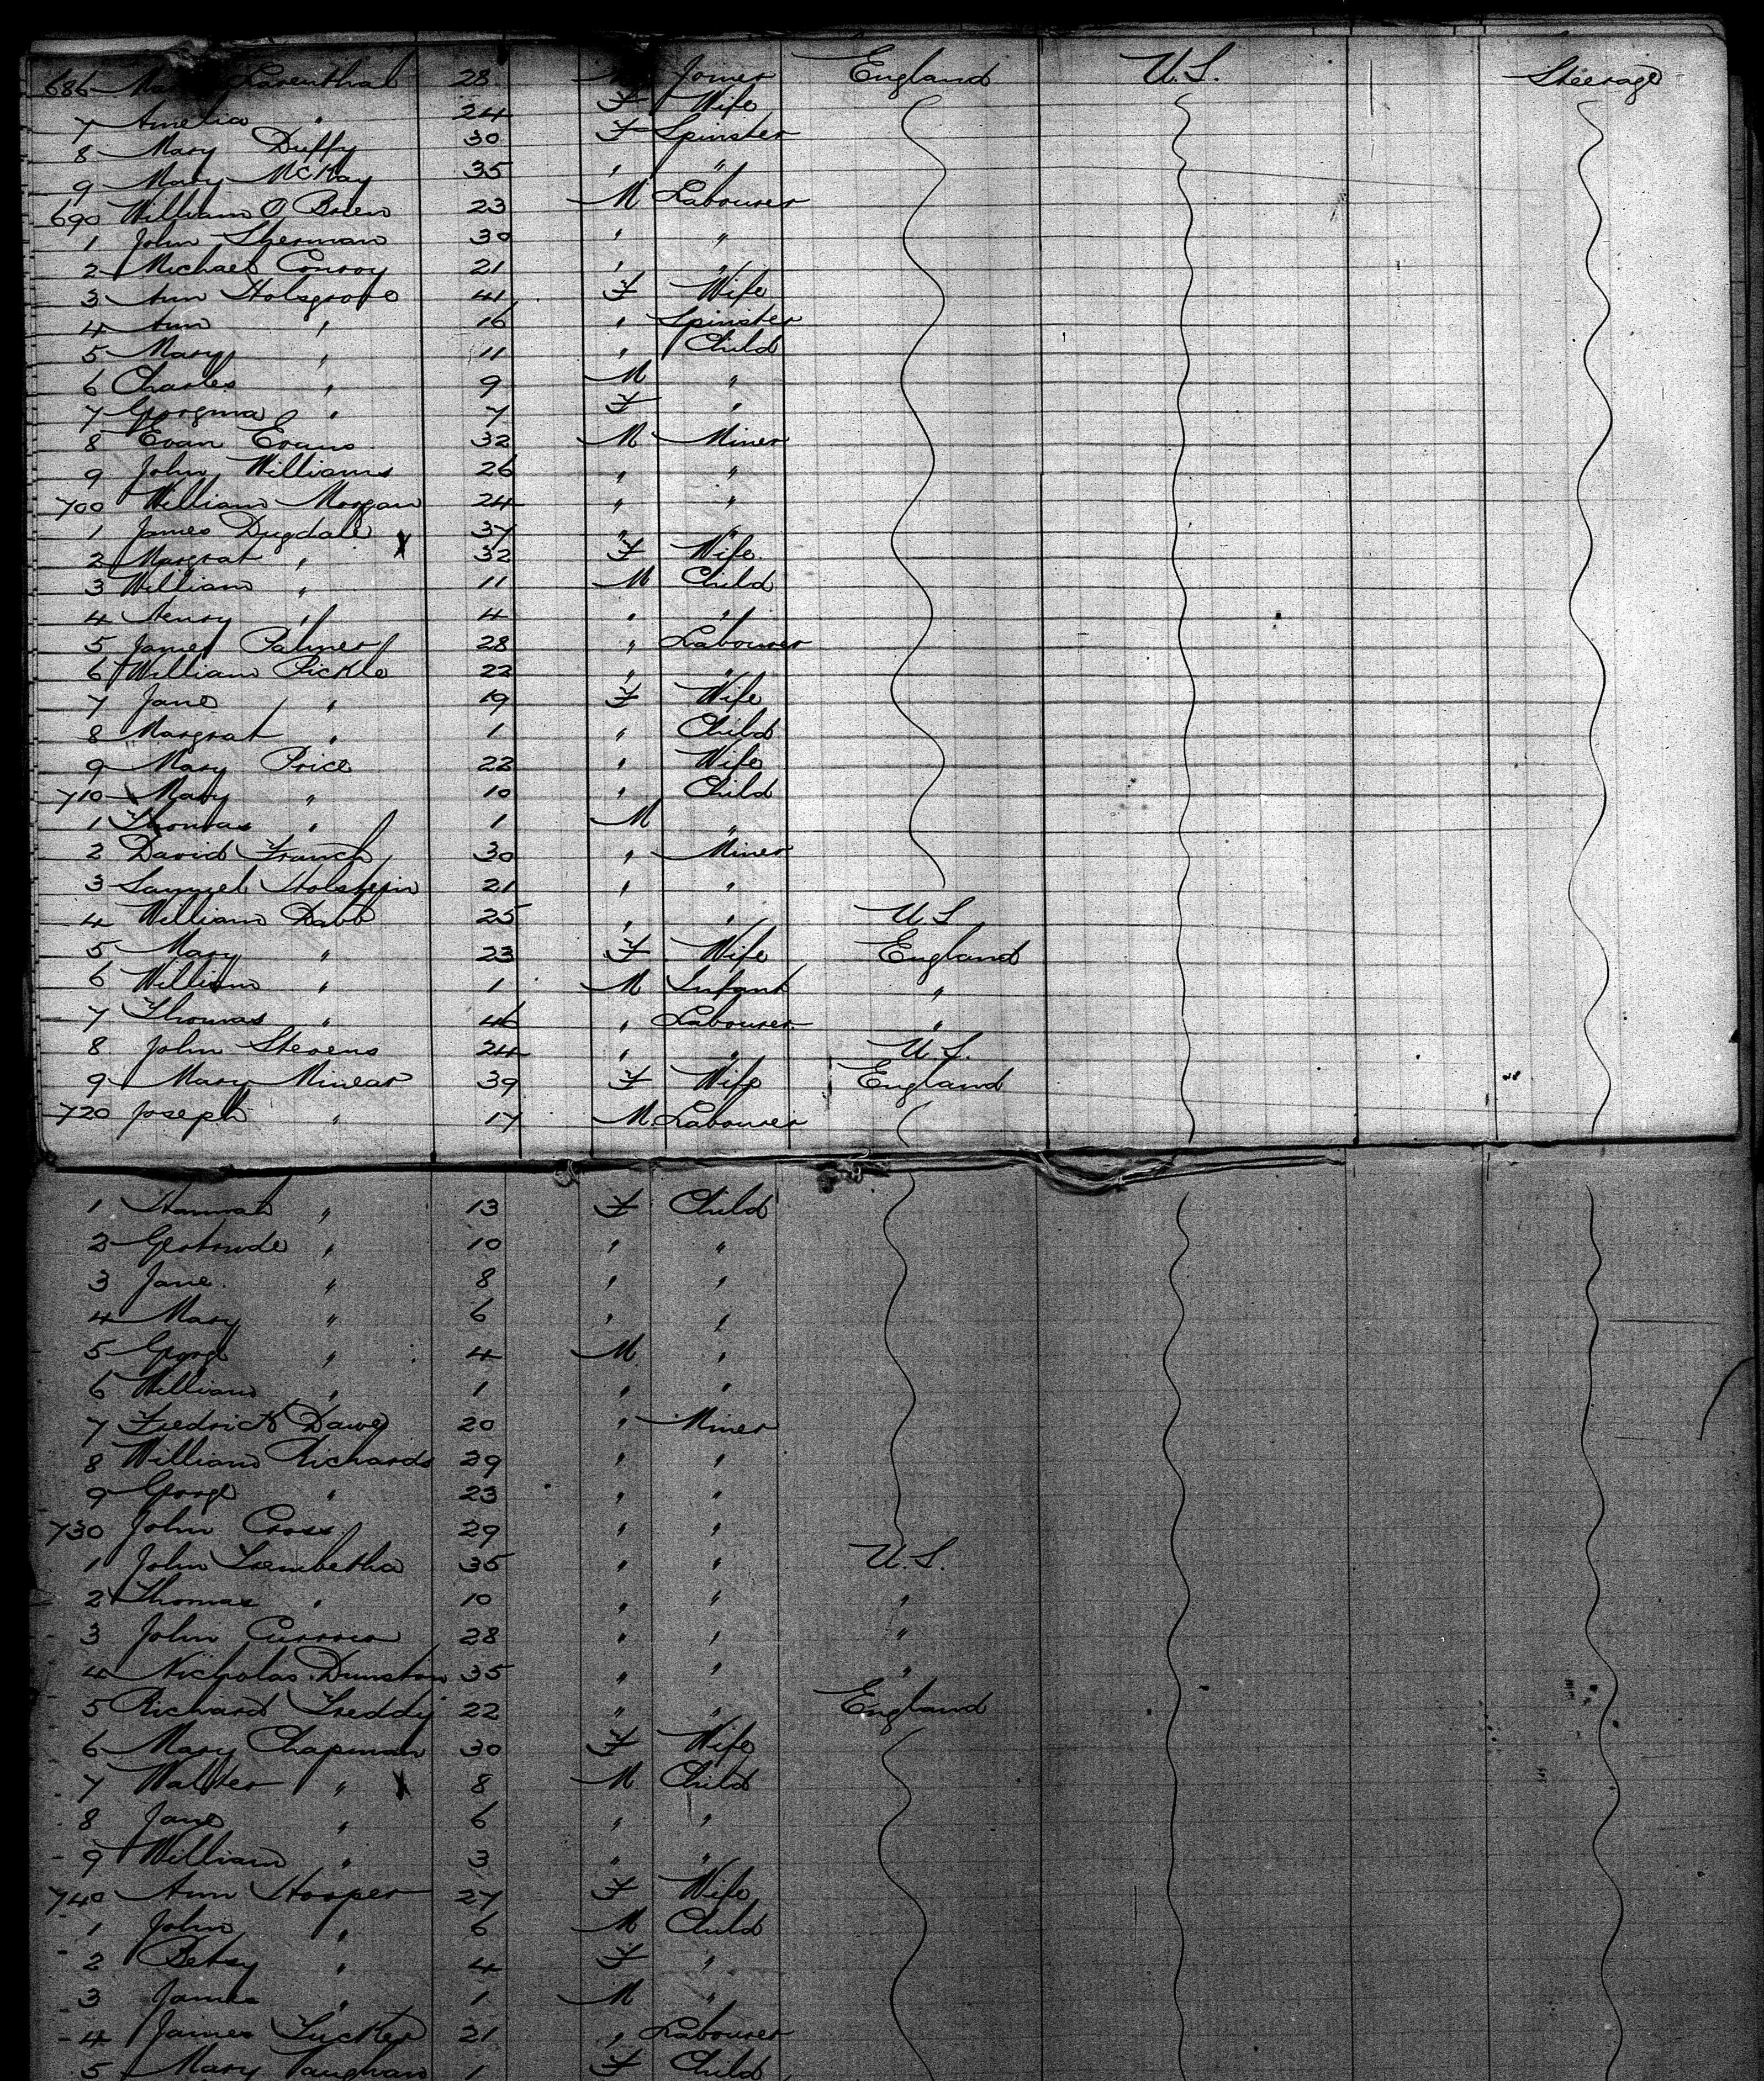 686 Loventhal 28 Joiner England U.S. Steerage
7 Amelia " 24 F Wife
8 Mary Duffy 30 F Spinster
9 Mary McKay 35 " "
690 William O Brien 23 M Labourer
1 John Sherman 30 " "
2 Michael Conroy 21 " "
3 Ann Holsgrove 41 F Wife
4 Ann " 16 " Spinster
5 Mary " 11 " Child
6 Charles " 9 M "
7 Georgina " 7 F "
8 Evan Evans 32 M Miner
9 John Williams 26 " "
700 William Morgan 24 " "
1 James Dugdale 37 " "
2 Margrat " X 32 F Wife
3 William " 11 M Child
4 Henry " 4 " "
5 James Palmer 28 " Labourer
6 William Pickle 22 " "
7 Jane " 19 F Wife
8 Margrat " 1 " Child
9 Mary Price 22 " Wife
710 Mary " 10 " Child
1 Thomas " 1 M "
2 David French 30 " Miner
3 Samuel Holstein 21 " "
4 William Dabb 25 " " U.S
5 Mary " 23 F Wife England
6 William " 1 M Infant "
7 Thomas " 46 " Labourer "
8 John Stevens 24 " " U.S.
9 Mary Minear 39 F Wife England
720 Joseph " 17 M Labourer
1 Hannah " 13 F Child
2 Gertrude " 10 " "
3 Jane " 8 " "
4 Mary " 6 " "
5 George " 4 M "
6 William " 1 " "
7 Fredrick Dawe 20 " Miner
8 William Richards 29 " "
9 George " 23 " "
730 John Cross 29 " "
1 John Trembetha 35 " " U.S.
2 Thomas " 10 " " "
3 John Currow 28 " " "
4 Nicholas Dunston 35 " " "
5 Richard Treddy 22 " " England
6 Mary Chapman 30 F Wife
7 Walter " X 8 M Child
8 Jane " 6 " "
9 William " 3 " "
740 Ann Hooper 27 F Wife
1 John " 6 M Child
2 Betsy " 4 F "
3 James " 1 M "
4 James Tucker 21 " Labourer
5 Mary Vaughan 1 F Child